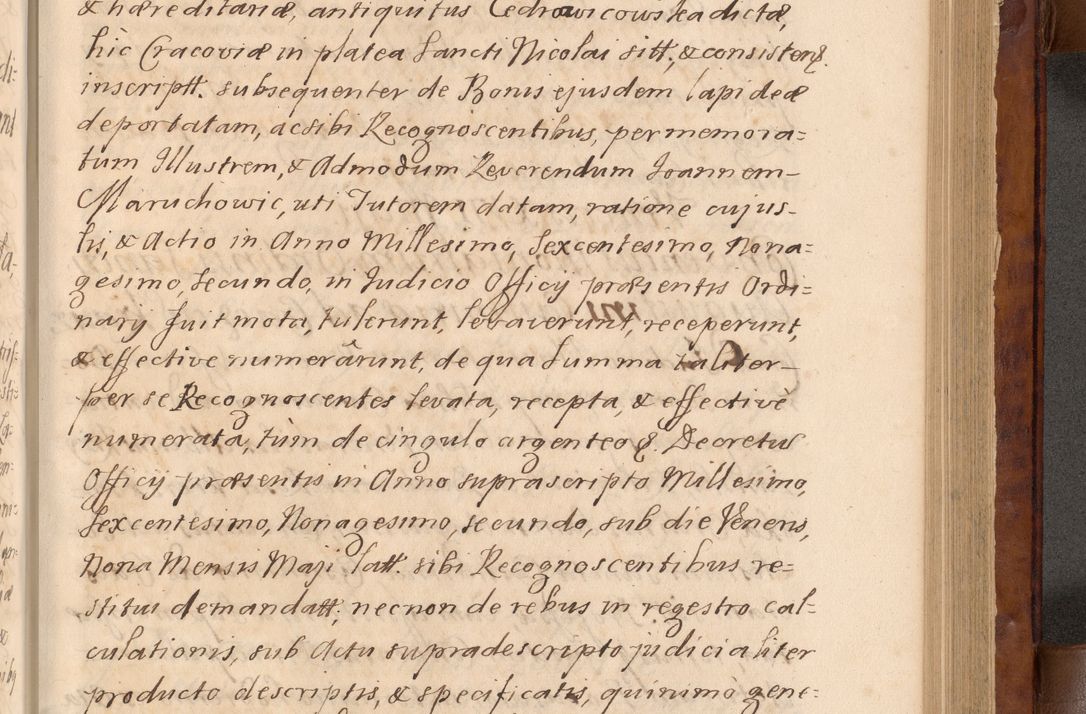 & hæreditariæ, antiquitus Cedrowicowska dictæ,
hic Cracoviæ in platea Sancti Nicolai sitt, & consisten.
inscriptt. subsequenter de Bonis ejusdem lapideæ
deportatam, ac sibi Recognoscentibus, per memora=
tum Illustrem, & Admodum Reverendum Joannem
Maruchowic, uti Tutorem datam, ratione cujus
lis, & Actio in Anno Millesimo, Sexcentesimo, Nona=
gesimo, Secundo, in Judicio Officij præsentis Ordi=
narij fuit mota, tulerunt, levaverunt, receperunt,
& effective numerârunt, de qua Summa taliter
per se Recognoscentes levata, recepta, & effectivè
numerata, tùm de cingulo argenteo &. Decretis
Officij præsentis in Anno suprascripto Millesimo,
Sexcentesimo, Nonagesimo, secundo, sub die Veneris,
Nona Mensis Maji latt. sibi Recognoscentibus re=
stitui demandatt, necnon de rebus in regestro cal=
culationis, sub Actu supradescripto judicialiter
producto descriptis, & specificatis, quinimò gene=